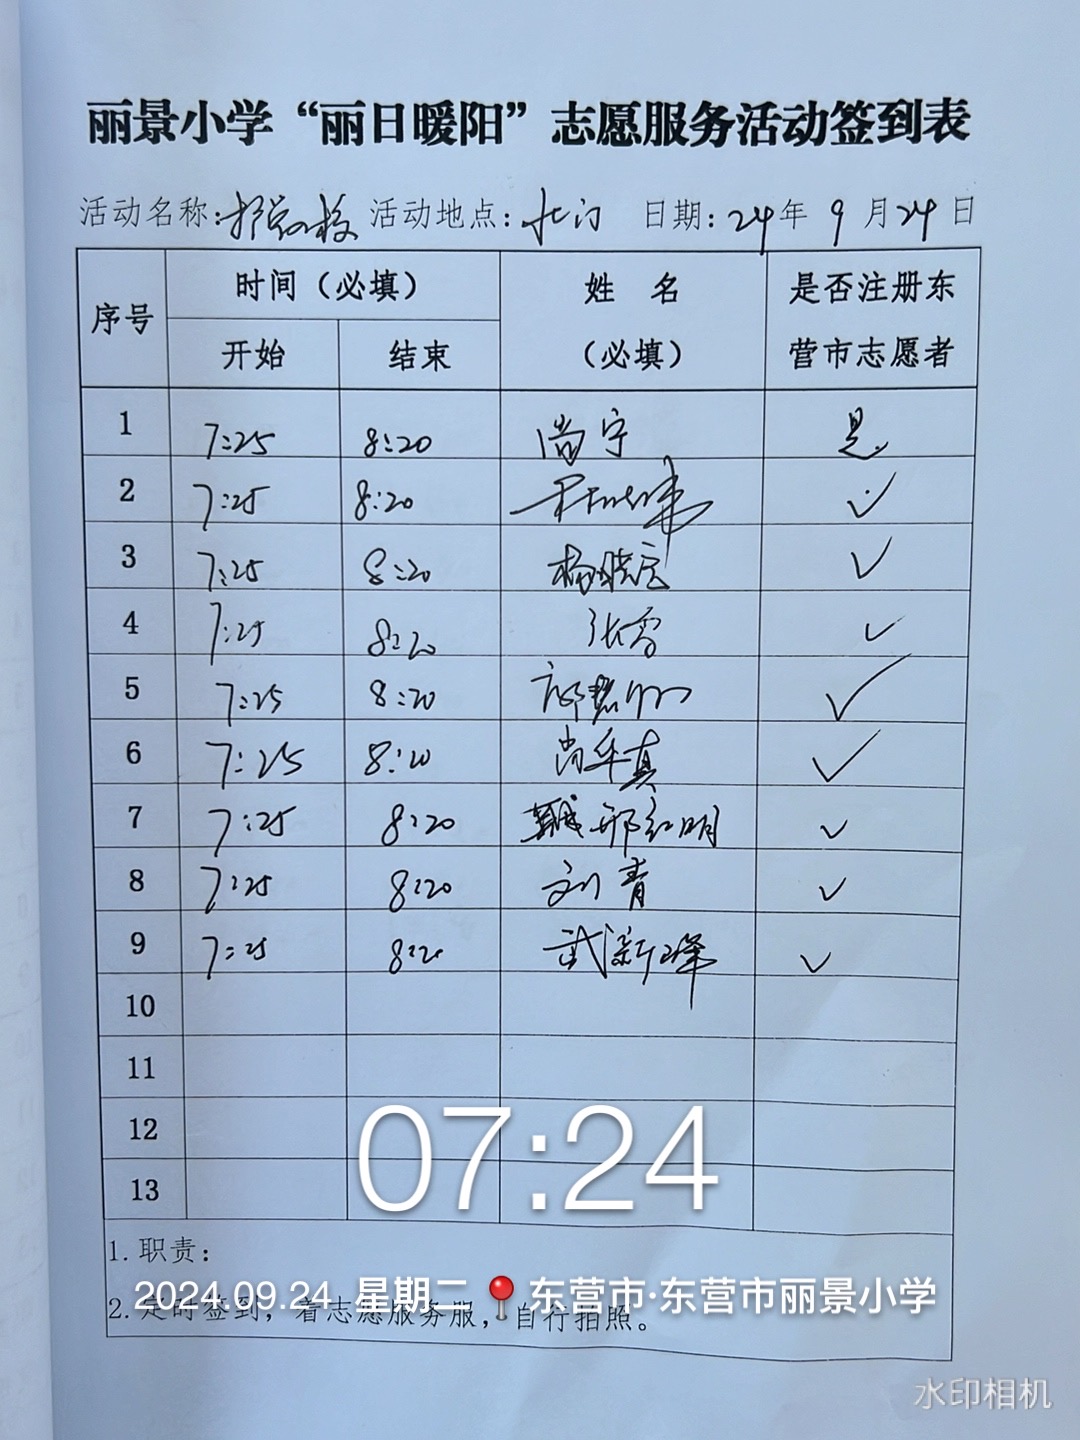 丽景小学“丽日暖阳”志愿服务活动签到表
活动名称: 活动地点: 北门 日期: 24年 9月24日
序号 时间（必填） 姓 名（必填） 是否注册东营市志愿者
开始 结束
1 7:25 8:20 尚宁 是
2 7:25 8:20 ✓
3 7:25 8:20 杨晓 ✓
4 7:25 8:20 张雪 ✓
5 7:25 8:20 ✓
6 7:25 8:20 尚华真 ✓
7 7:25 8:20 邢红明 ✓
8 7:25 8:20 刘青 ✓
9 7:25 8:20 武新峰 ✓
10
11
12
13
07:24
1.职责：
2.定时签到，着志愿服务服，自行拍照。
2024.09.24 星期二 东营市·东营市丽景小学
水印相机